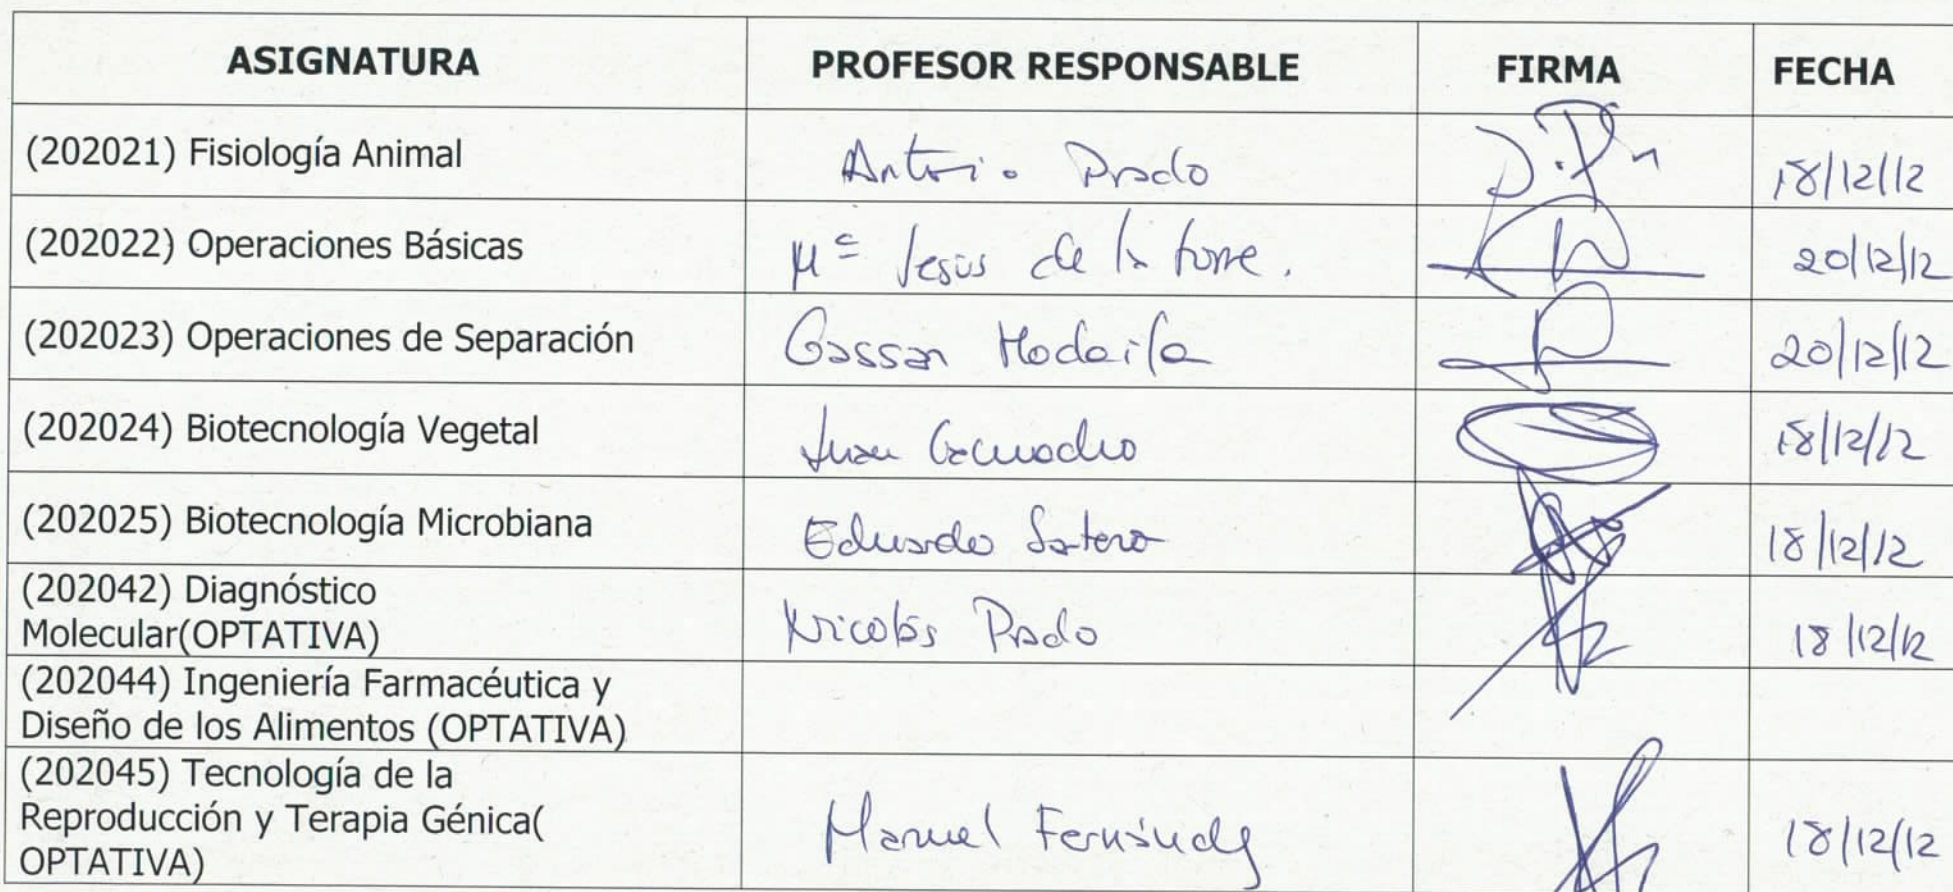 ASIGNATURA PROFESOR RESPONSABLE FIRMA FECHA
(202021) Fisiología Animal Antonio Prado 18/12/12
(202022) Operaciones Básicas Mª Jesús de la Torre. 20/12/12
(202023) Operaciones de Separación Gassan Hodaifa 20/12/12
(202024) Biotecnología Vegetal Juan 18/12/12
(202025) Biotecnología Microbiana Eduardo Santero 18/12/12
(202042) Diagnóstico
Molecular(OPTATIVA) Nicolás Prado 18/12/12
(202044) Ingeniería Farmacéutica y
Diseño de los Alimentos (OPTATIVA)
(202045) Tecnología de la
Reproducción y Terapia Génica( Manuel Fernández 18/12/12
OPTATIVA)